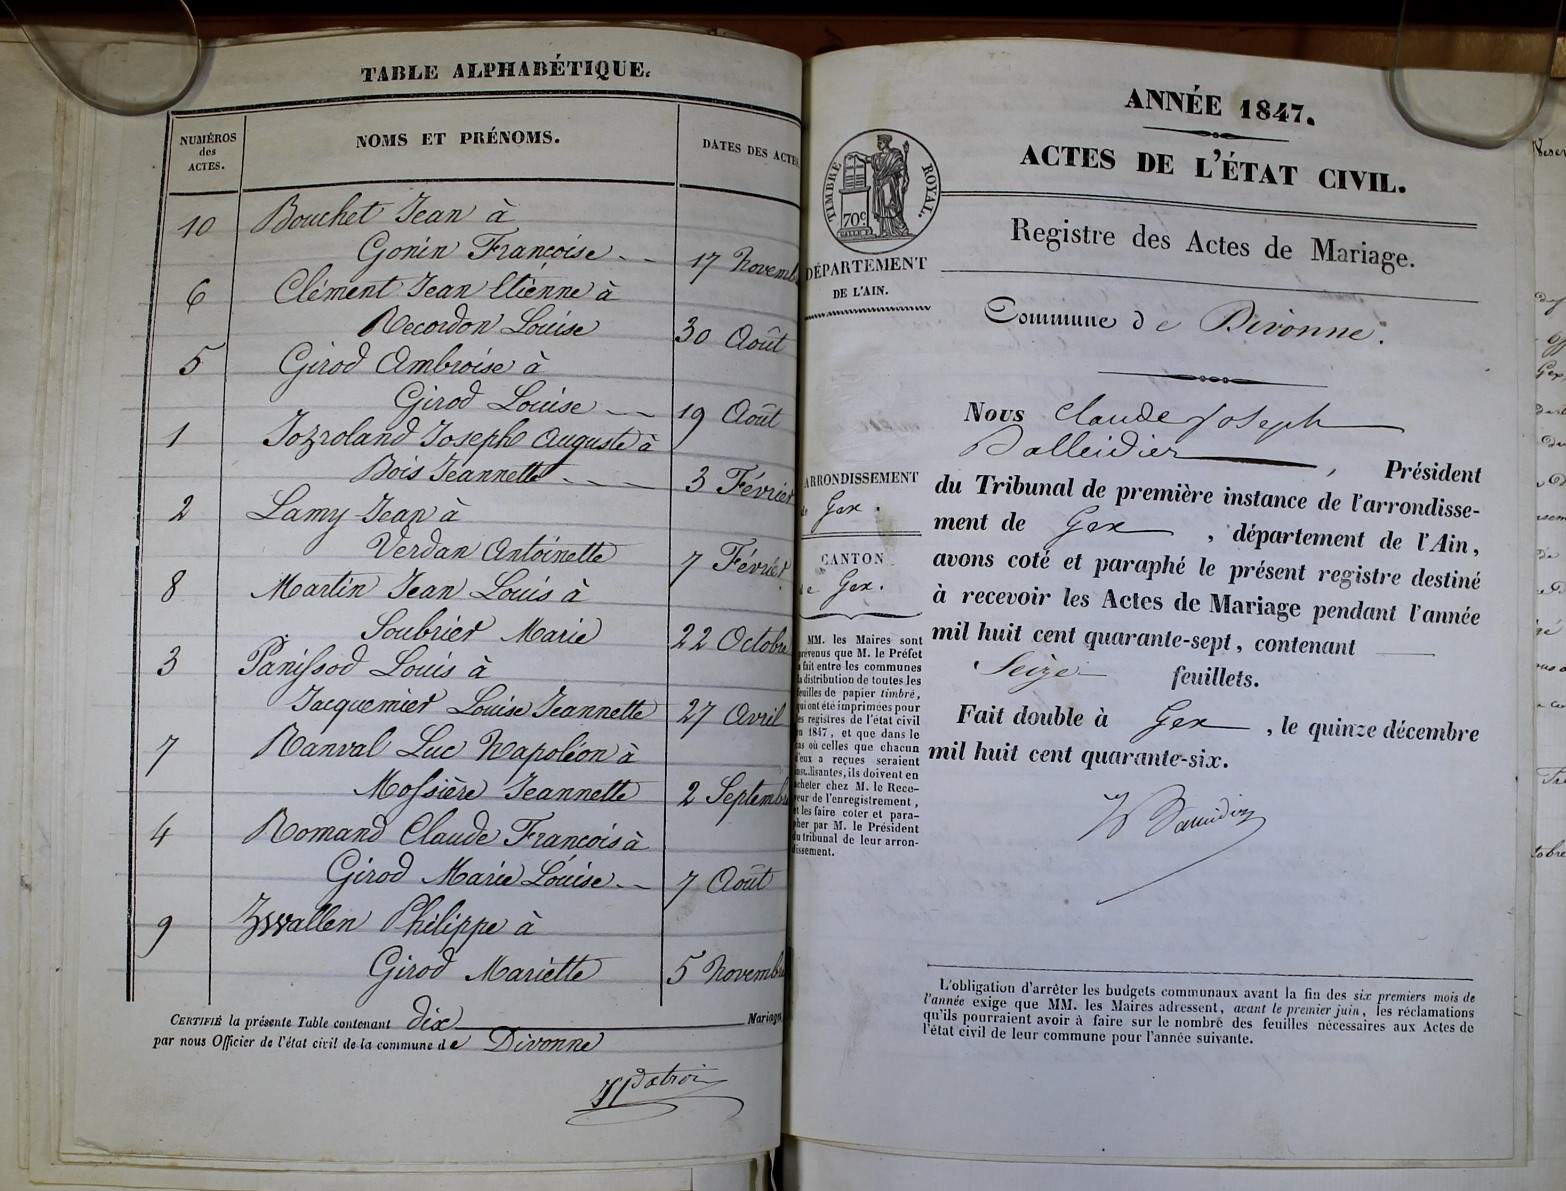 TABLE ALPHABÉTIQUE.
NUMÉROS
des
ACTES.
NOMS ET PRÉNOMS.
DATES DES ACTES
10 Bouchet Jean à
Gonin Françoise 17 Novemb
6 Clément Jean Etienne à
Recordon Louise 30 Août
5 Girod Ambroise à
Girod Louise 19 Août
1 Jozroland Joseph Auguste à
Bois Jeannette 3 Février
2 Lamy Jean à
Verdan Antoinette 7 Février
8 Martin Jean Louis à
Soubrier Marie 22 Octobre
3 Panissod Louis à
Jacquemier Louise Jeannette 27 Avril
7 Ranval Luc Napoléon à
Mossière Jeannette 2 Septembre
4 Romand Claude François à
Girod Marie Louise 7 Août
9 Zwallen Philippe à
Girod Mariette 5 Novembre
CERTIFIÉ la présente Table contenant dix Mariages
par nous Officier de l'état civil de la commune de Divonne
ANNÉE 1847.
ACTES DE L'ÉTAT CIVIL.
TIMBRE ROYAL.
70c
Registre des Actes de Mariage.
DÉPARTEMENT
DE L'AIN.
Commune de Divonne.
Nous Claude Joseph
Balleidier, Président
du Tribunal de première instance de l'arrondisse-
ment de Gex, département de l'Ain,
avons coté et paraphé le présent registre destiné
à recevoir les Actes de Mariage pendant l'année
mil huit cent quarante-sept, contenant
Seize feuillets.
Fait double à Gex, le quinze décembre
mil huit cent quarante-six.
ARRONDISSEMENT
de Gex.
CANTON
de Gex.
MM. les Maires sont
prévenus que M. le Préfet
a fait entre les communes
la distribution de toutes les
feuilles de papier timbré,
qui ont été imprimées pour
les registres de l'état civil
en 1847, et que dans le
cas où celles que chacun
d'eux a reçues seraient
insuffisantes, ils doivent en
acheter chez M. le Rece-
veur de l'enregistrement,
et les faire coter et para-
pher par M. le Président
du tribunal de leur arron-
dissement.
L'obligation d'arrêter les budgets communaux avant la fin des six premiers mois de
l'année exige que MM. les Maires adressent, avant le premier juin, les réclamations
qu'ils pourraient avoir à faire sur le nombre des feuilles nécessaires aux Actes de
l'état civil de leur commune pour l'année suivante.